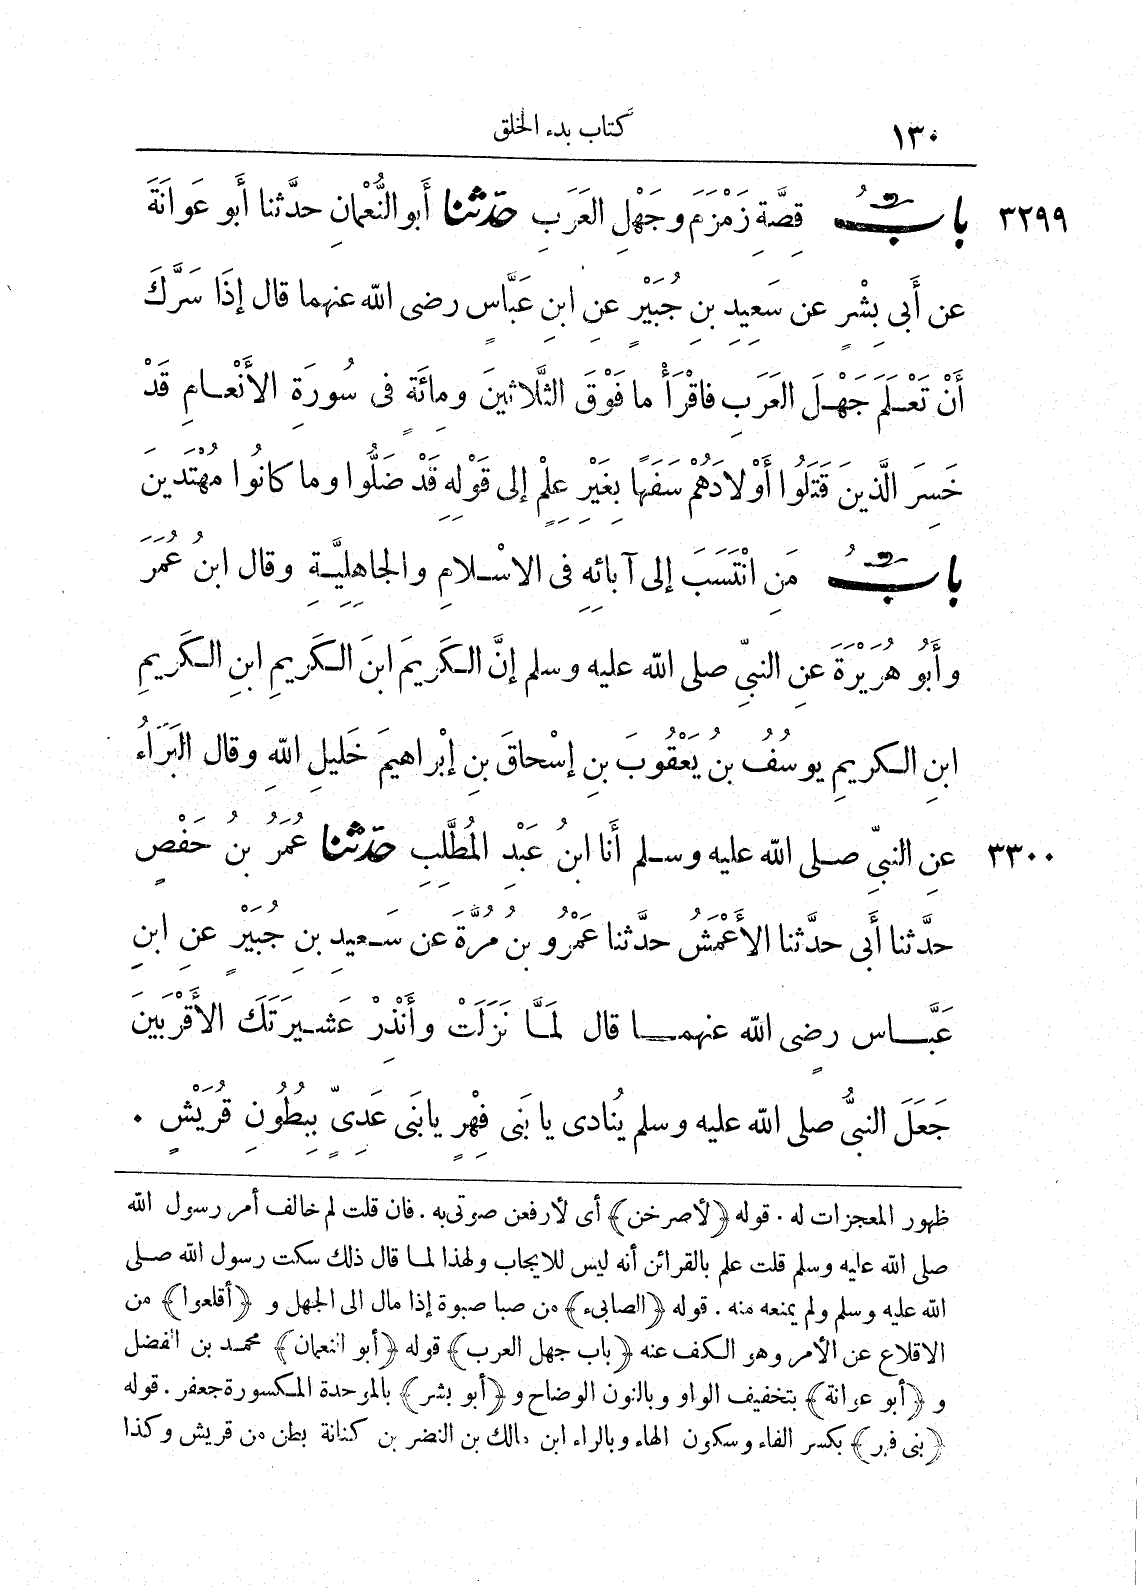 ١٣٠ كتاب بدء الخلق
٣٢٩٩ بابُ قِصَّةِ زَمْزَمَ وجَهْلِ العَرَبِ حدّثنا أَبو النُّعْمانِ حدَّثنا أَبو عَوانَةَ
عن أَبى بِشْرٍ عن سَعِيدِ بنِ جُبَيْرٍ عنِ ابنِ عَبَّاسٍ رضى الله عنهما قال إذَا سَرَّكَ
أَنْ تَعْلَمَ جَهْلَ العَرَبِ فاقْرَأْ ما فَوْقَ الثَّلاثينَ ومائَةٍ فى سُورَةِ الأَنْعامِ قَدْ
خَسِرَ الَّذينَ قَتَلُوا أَوْلادَهُمْ سَفَهًا بِغَيْرِ عِلْمٍ إلى قَوْلِهِ قَدْ ضَلُّوا وما كانُوا مُهْتَدينَ
بابُ مَنِ انْتَسَبَ إلى آبائِهِ فى الاسْلامِ والجاهِلِيَّةِ وقال ابنُ عُمَرَ
وأَبُو هُرَيْرَةَ عنِ النبيِّ صلى الله عليه وسلم إنَّ الكَرِيمَ ابنَ الكَرِيمِ ابنِ الكَرِيمِ
ابنِ الكريمِ يوسُفُ بنُ يَعْقُوبَ بنِ إسْحاقَ بنِ إبْراهيمَ خَليلِ اللهِ وقال البَرَاءُ
٣٣٠٠ عنِ النبيِّ صلى الله عليه وسلم أَنا ابنُ عَبْدِ المُطَّلِبِ حدّثنا عُمَرُ بنُ حَفْصٍ
حدَّثنا أَبى حدَّثنا الأَعْمَشُ حدَّثنا عَمْرُو بنُ مُرَّةَ عن سَعيدِ بنِ جُبَيْرٍ عنِ ابنِ
عَبَّاسٍ رضى الله عنهما قال لمَّا نَزَلَتْ وأَنْذِرْ عَشيرَتَكَ الأَقْرَبينَ
جَعَلَ النبىُّ صلى الله عليه وسلم يُنادى يا بَنى فِهْرٍ يابَنى عَدِىٍّ بِبُطُونِ قُرَيْشٍ .
ظهور المعجزات له . قوله ﴿لأصرخن﴾ أى لأرفعن صوتى به . فان قلت لم خالف أمر رسول الله
صلى الله عليه وسلم قلت علم بالقرائن أنه ليس للايجاب ولهذا لما قال ذلك سكت رسول الله صلى
الله عليه وسلم ولم يمنعه منه . قوله ﴿الصابىء﴾ من صبا صبوة إذا مال الى الجهل و ﴿أقلعوا﴾ من
الاقلاع عن الأمر وهو الكف عنه ﴿باب جهل العرب﴾ قوله ﴿أبو النعمان﴾ محمد بن الفضل
و ﴿أبو عوانة﴾ بتخفيف الواو وبالنون الوضاح و ﴿أبو بشر﴾ بالموحدة المكسورة جعفر . قوله
﴿بنى فهر﴾ بكسر الفاء وسكون الهاء وبالراء ابن مالك بن النضر بن كنانة بطن من قريش وكذا